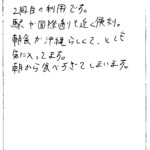 2回目の利用です。
駅や国際通りも近く便利。
朝食が沖縄らしくて、とても
気に入ってます。
朝から食べすぎてしまいます。